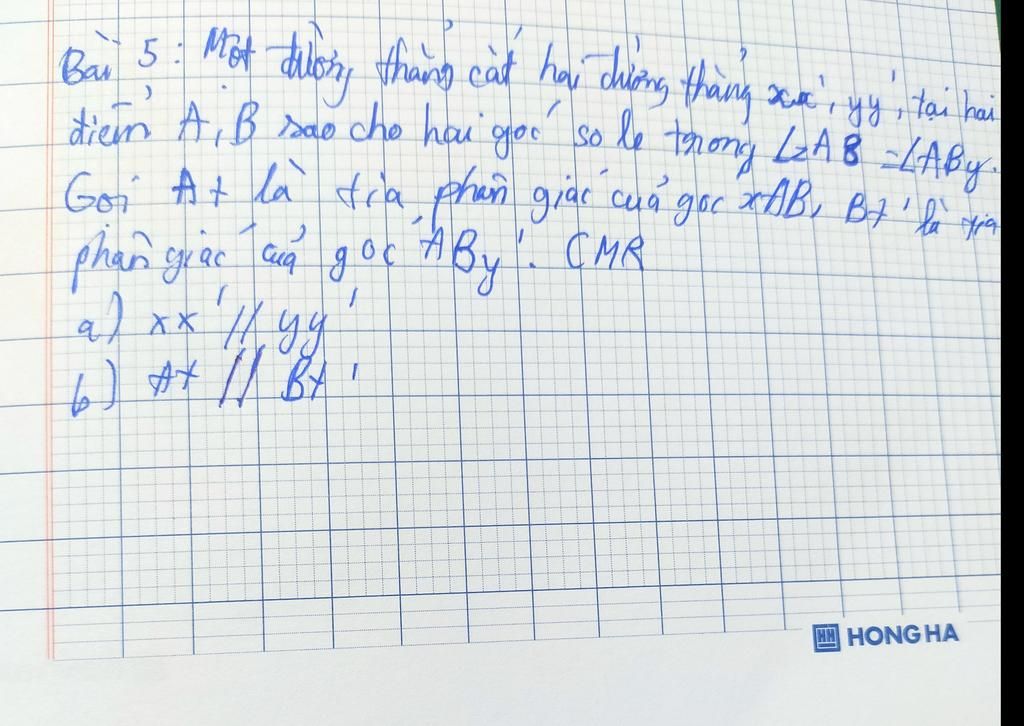 Bài 5: Một đường thẳng cắt hai đường thẳng xx', yy', tại hai
điểm A, B sao cho hai góc so le trong ∠zAB = ∠ABy.
Gọi At là tia phân giác của góc xAB, Bt' là tia
phân giác của góc ABy'. CMR
a) xx' // yy'
b) At // Bt'
HONG HA